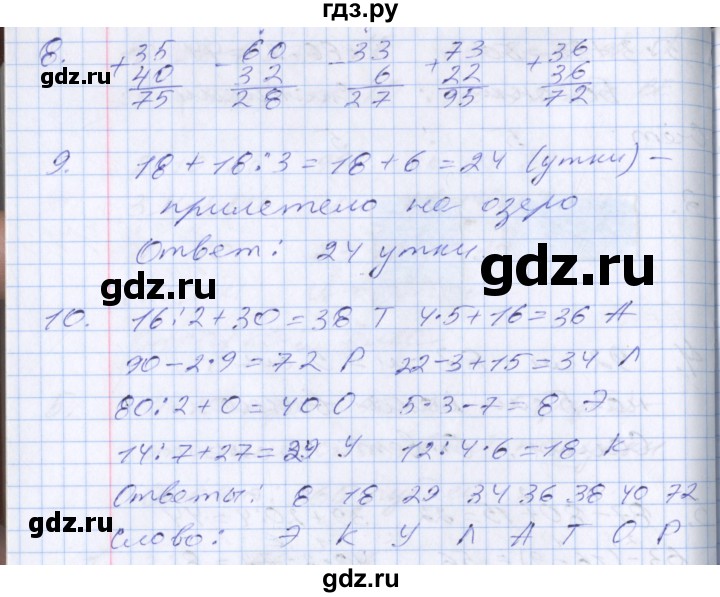 гдз.ру
8. +35 -60 -33 +73 +36
40 32 6 22 36
75 28 27 95 72
9. 18 + 18 : 3 = 18 + 6 = 24 (утки) –
прилетело на озеро
Ответ: 24 утки
10. 16 : 2 + 30 = 38 Т 4 · 5 + 16 = 36 А
90 – 2 · 9 = 72 Р 22 – 3 + 15 = 34 Л
80 : 2 + 0 = 40 О 5 · 3 – 7 = 8 Э
14 : 7 + 27 = 29 У 12 : 4 · 6 = 18 К
Ответы: 8 18 29 34 36 38 40 72
Слово: Э К У Л А Т О Р
gdz.ru
gdz.ru
gdz.ru
gdz.ru
gdz.ru
gdz.ru
gdz.ru
gdz.ru